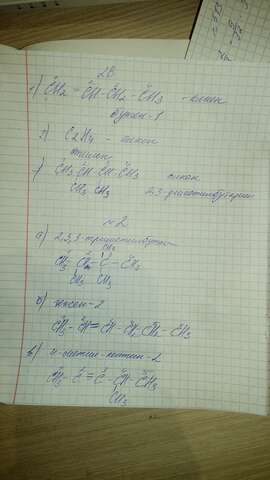 2В
1) CH2 = CH - CH2 - CH3 - алкен
бутен-1
2) C2H4 - алкен
этилен
CH3 CH CH CH3 алкан
CH3 CH3 2,3-диметилбутан
№2
а) 2,3,3-триметилбутан
CH3
CH3 - CH - C - CH3
CH3 CH3
б) гексен-2
CH3 - CH = CH - CH2 CH2 - CH3
в) 4-метил-пентин-2
CH3 - C = C - CH - CH3
CH3